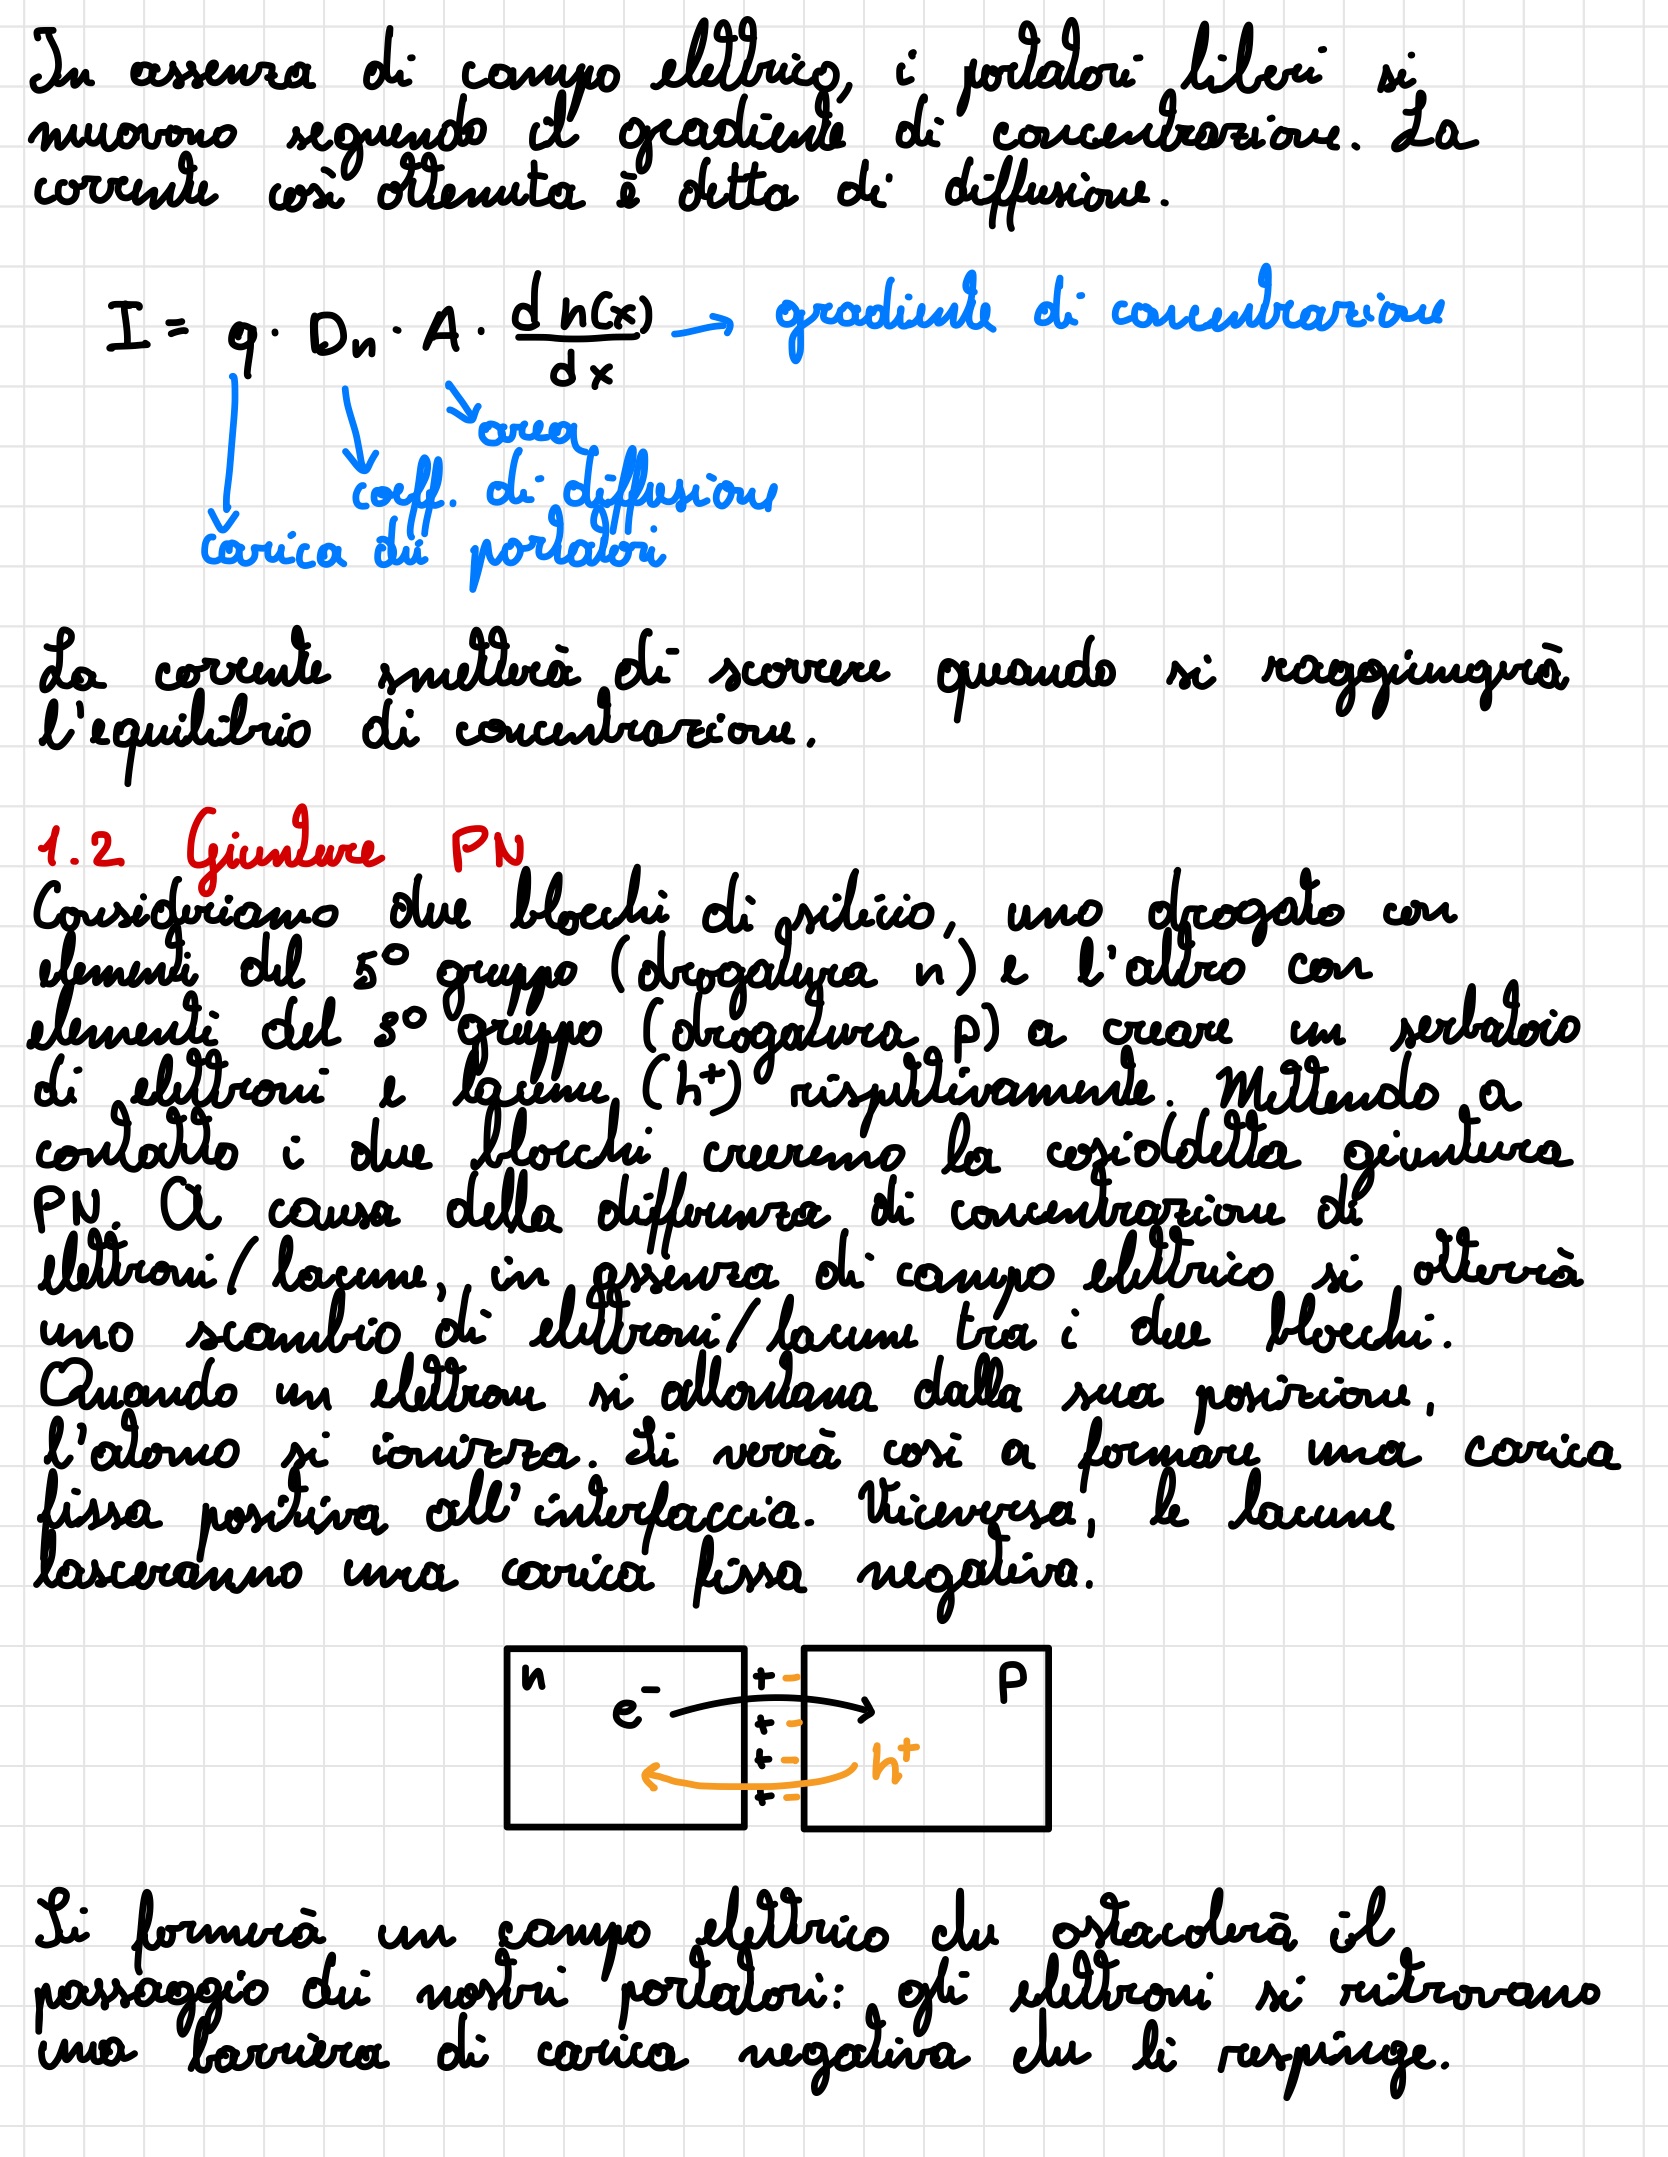 In assenza di campo elettrico, i portatori liberi si
muovono seguendo il gradiente di concentrazione. La
corrente così ottenuta è detta di diffusione.
I = q · Dn · A · d n(x) / dx → gradiente di concentrazione
area
coeff. di diffusione
carica dei portatori
La corrente smetterà di scorrere quando si raggiungerà
l'equilibrio di concentrazione.
1.2 Giunture PN
Consideriamo due blocchi di silicio, uno drogato con
elementi del 5° gruppo (drogatura n) e l'altro con
elementi del 3° gruppo (drogatura p) a creare un serbatoio
di elettroni e lacune (h⁺) rispettivamente. Mettendo a
contatto i due blocchi creeremo la cosiddetta giuntura
PN. A causa della differenza di concentrazione di
elettroni/lacune, in assenza di campo elettrico si otterrà
uno scambio di elettroni/lacune tra i due blocchi.
Quando un elettrone si allontana dalla sua posizione,
l'atomo si ionizza. Si verrà così a formare una carica
fissa positiva all'interfaccia. Viceversa, le lacune
lasceranno una carica fissa negativa.
n + - p
e⁻ + -
+ - h⁺
+ -
Si formerà un campo elettrico che ostacolerà il
passaggio dei nostri portatori: gli elettroni si ritrovano
una barriera di carica negativa che li respinge.